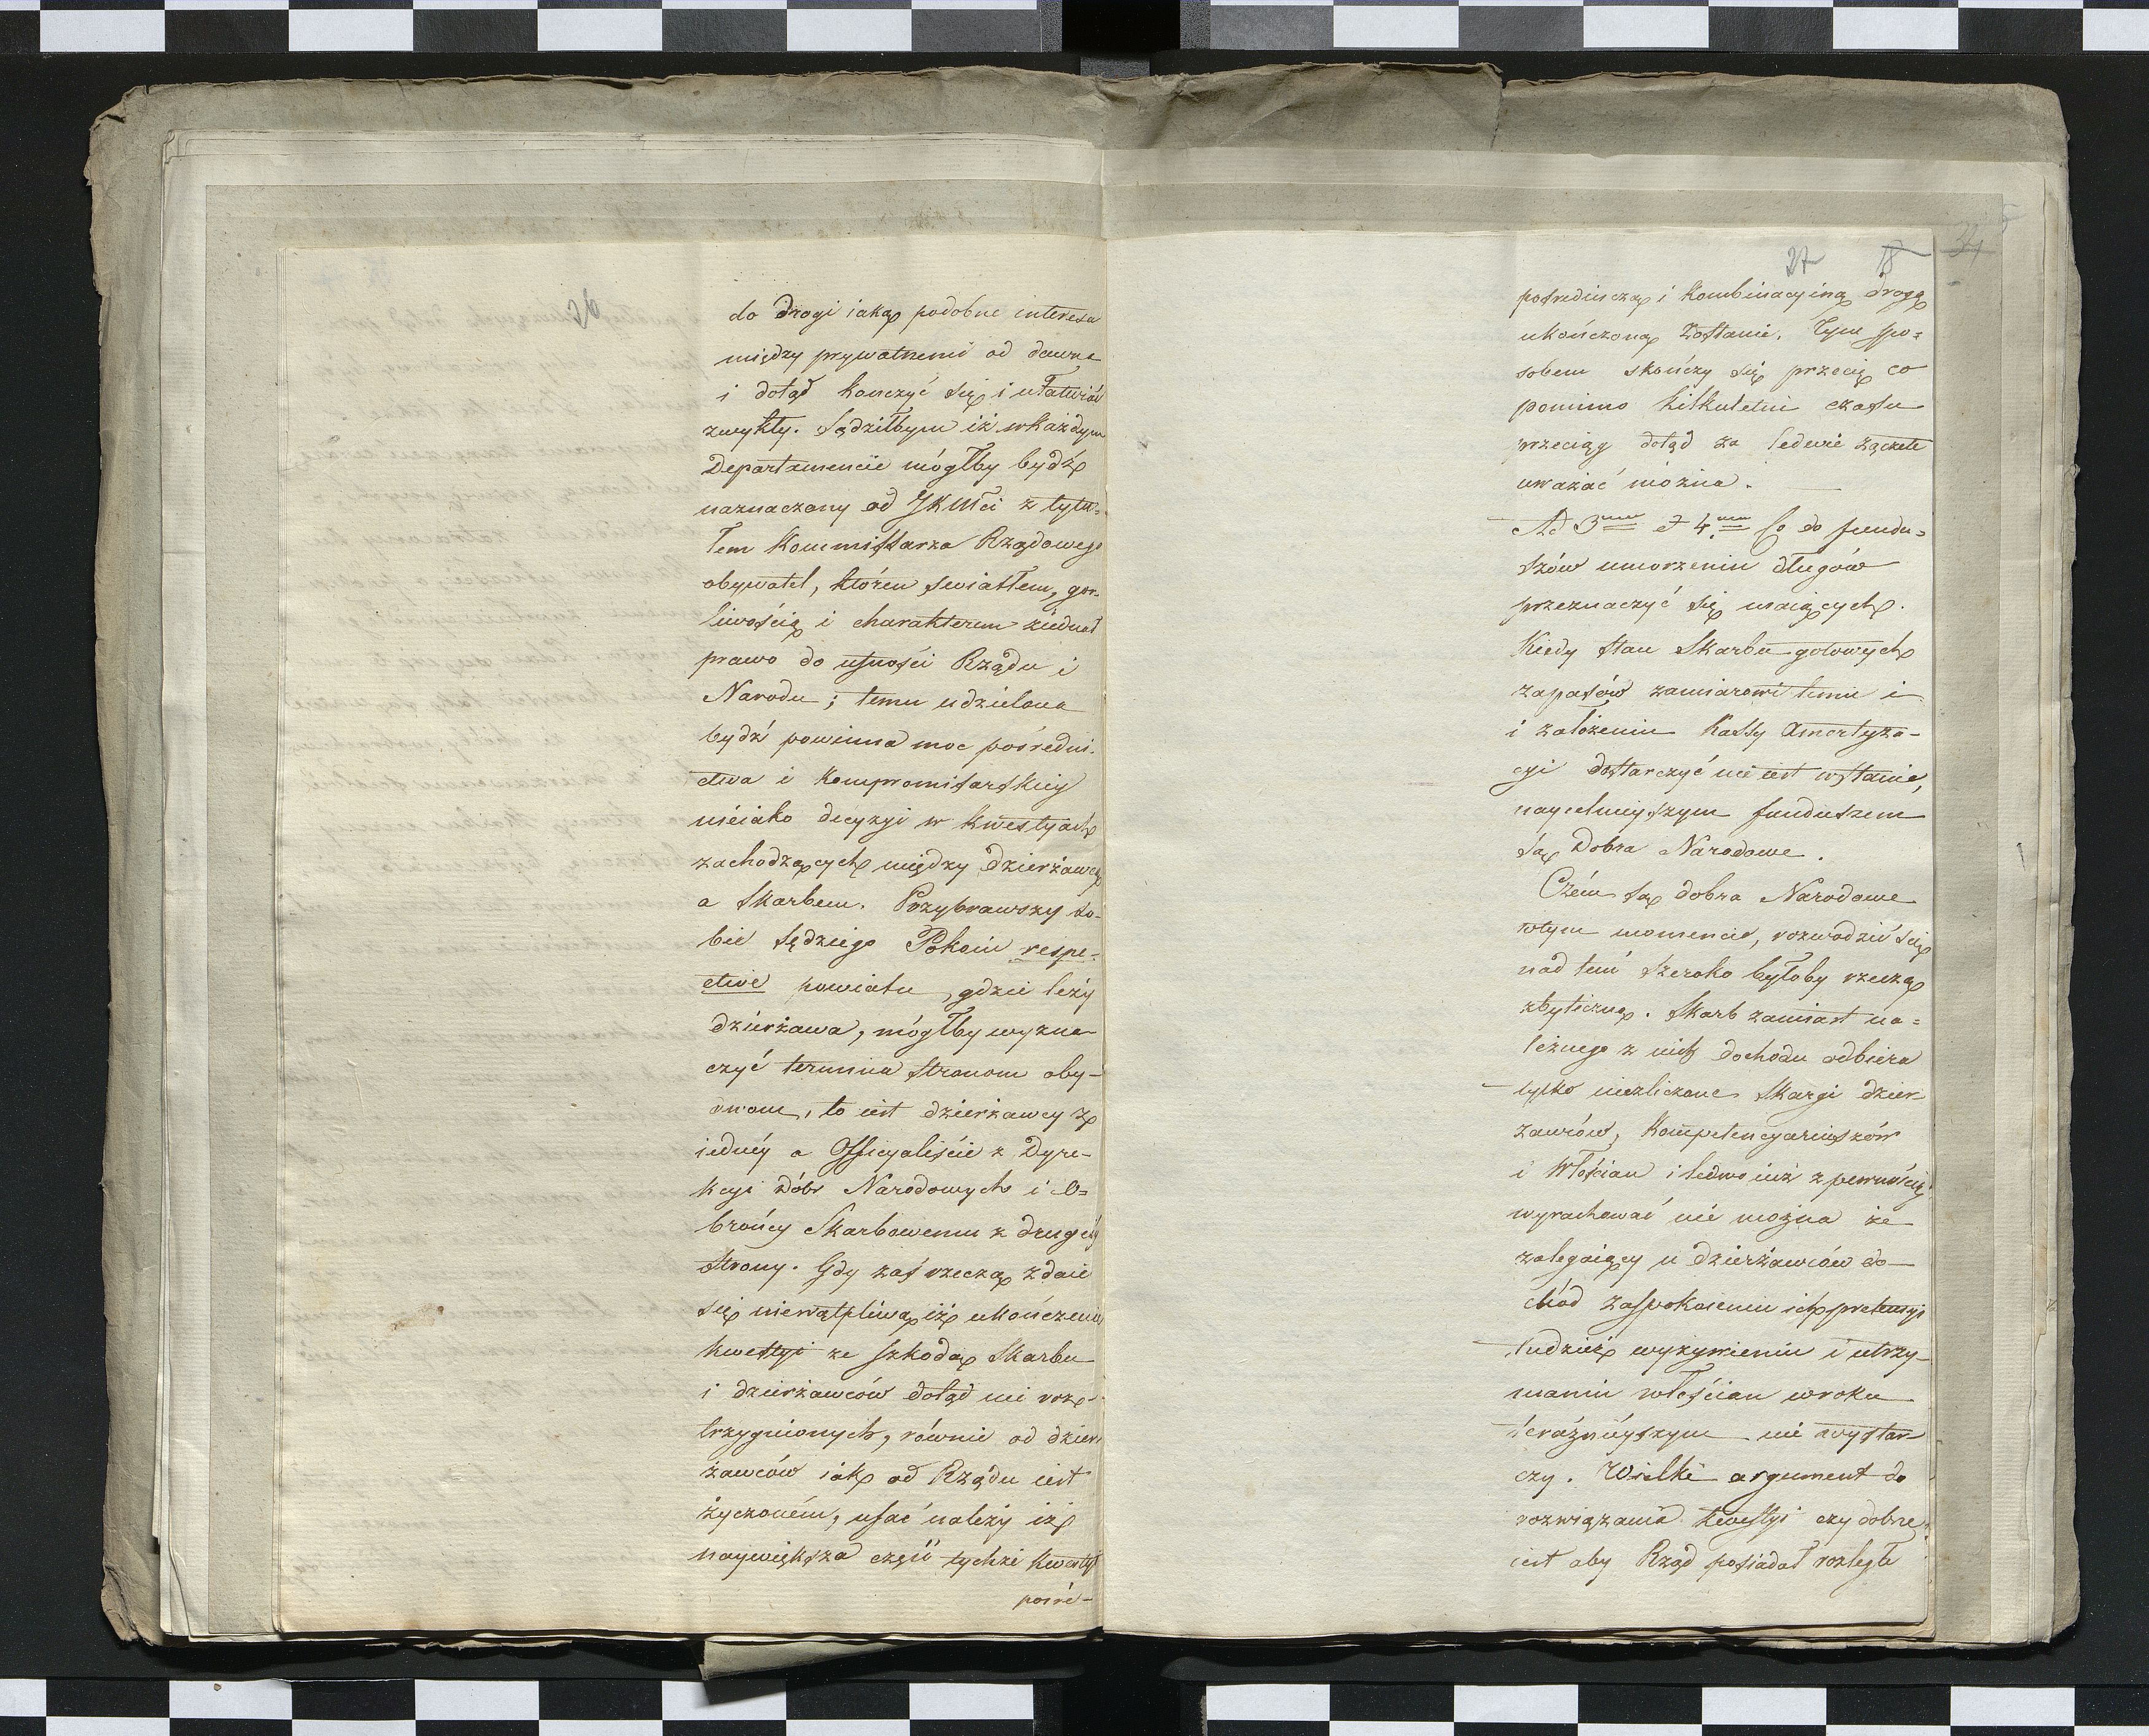 26
do drogi iaką podobne interesa
między prywatnemi od dawna
i dotąd konczyć się i ułatwiać
zwykły. Sądziłbym iż wkażdym
Departamencie mógłby bydź
naznaczony od JKMści z tytu-
łem Kommissarza Rządowego
obywatel, któren swiatłem, gor-
liwością i charakterem ziednał
prawo do ufności Rządu i
Narodu; temu udzielona
bydź powinna moc pośredni-
ctwa i Kompromisarskiey
nieiako decyzyi w kwestyach
zachodzących między dzierżawcą
a Skarbem. Przybrawszy so-
bie Sędziego Pokoiu respe-
ctive powiatu, gdzie leży
dzierżawa, mógłby wyzna-
czyć termina Stronom oby-
dwom, to iest dzierżawcy z
iednéy a Officyaliście z Dyre-
kcyi Dóbr Narodowych i O-
brońcy Skarbowemu z drugiéy
Strony. Gdy zaś rzeczą zdaie
się niewątpliwą, iż ukończenie
kwestyi ze szkodą Skarbu
i dzierżawców dotąd nie roz-
trzygnionych, równie od dzier-
żawców iak od Rządu iest
życzoném, ufać należy iż
naywiększa część tychże kwestyi
pośre-
27 18
34
pośredniczą i kombinacyiną drogą
ukończoną zostanie. Tym spo-
sobem skończy się przecię co
pomimo kilkuletni czasu
przeciąg dotąd za ledwie zączęte
uważać można.
Ad 3um et 4um Co do fundu-
szów umorzeniu długów
przeznaczyć się maiących.
Kiedy stan Skarbu gotowych
zapasów zamiarowi temu i
i założeniu Kassy Amortyza-
cyi dostarczyć nie iest wstanie,
naycelnieyszym funduszem
są Dobra Narodowe.
Czém są dobra Narodowe
wtym momencie, rozwodzić się
nad tem szeroko byłoby rzeczą
zbyteczną. Skarb zamiast na-
leżnego z nich dochodu odbiera
tylko niezliczone Skargi dzier-
żawców, Kompetencyariuszów
i Włościan i ledwo iuż z pewnością
wyrachować nie można że
zalegaiący u dzierżawców do-
chód zaspokoieniu ich pretensyi
tudzież wyżywieniu i utrzy-
maniu włościan wroku
teraźnieyszym nie wystar-
czy. Wielki argument do
rozwiązania kwestyi czy dobrze
iest aby Rząd posiadał rozległe